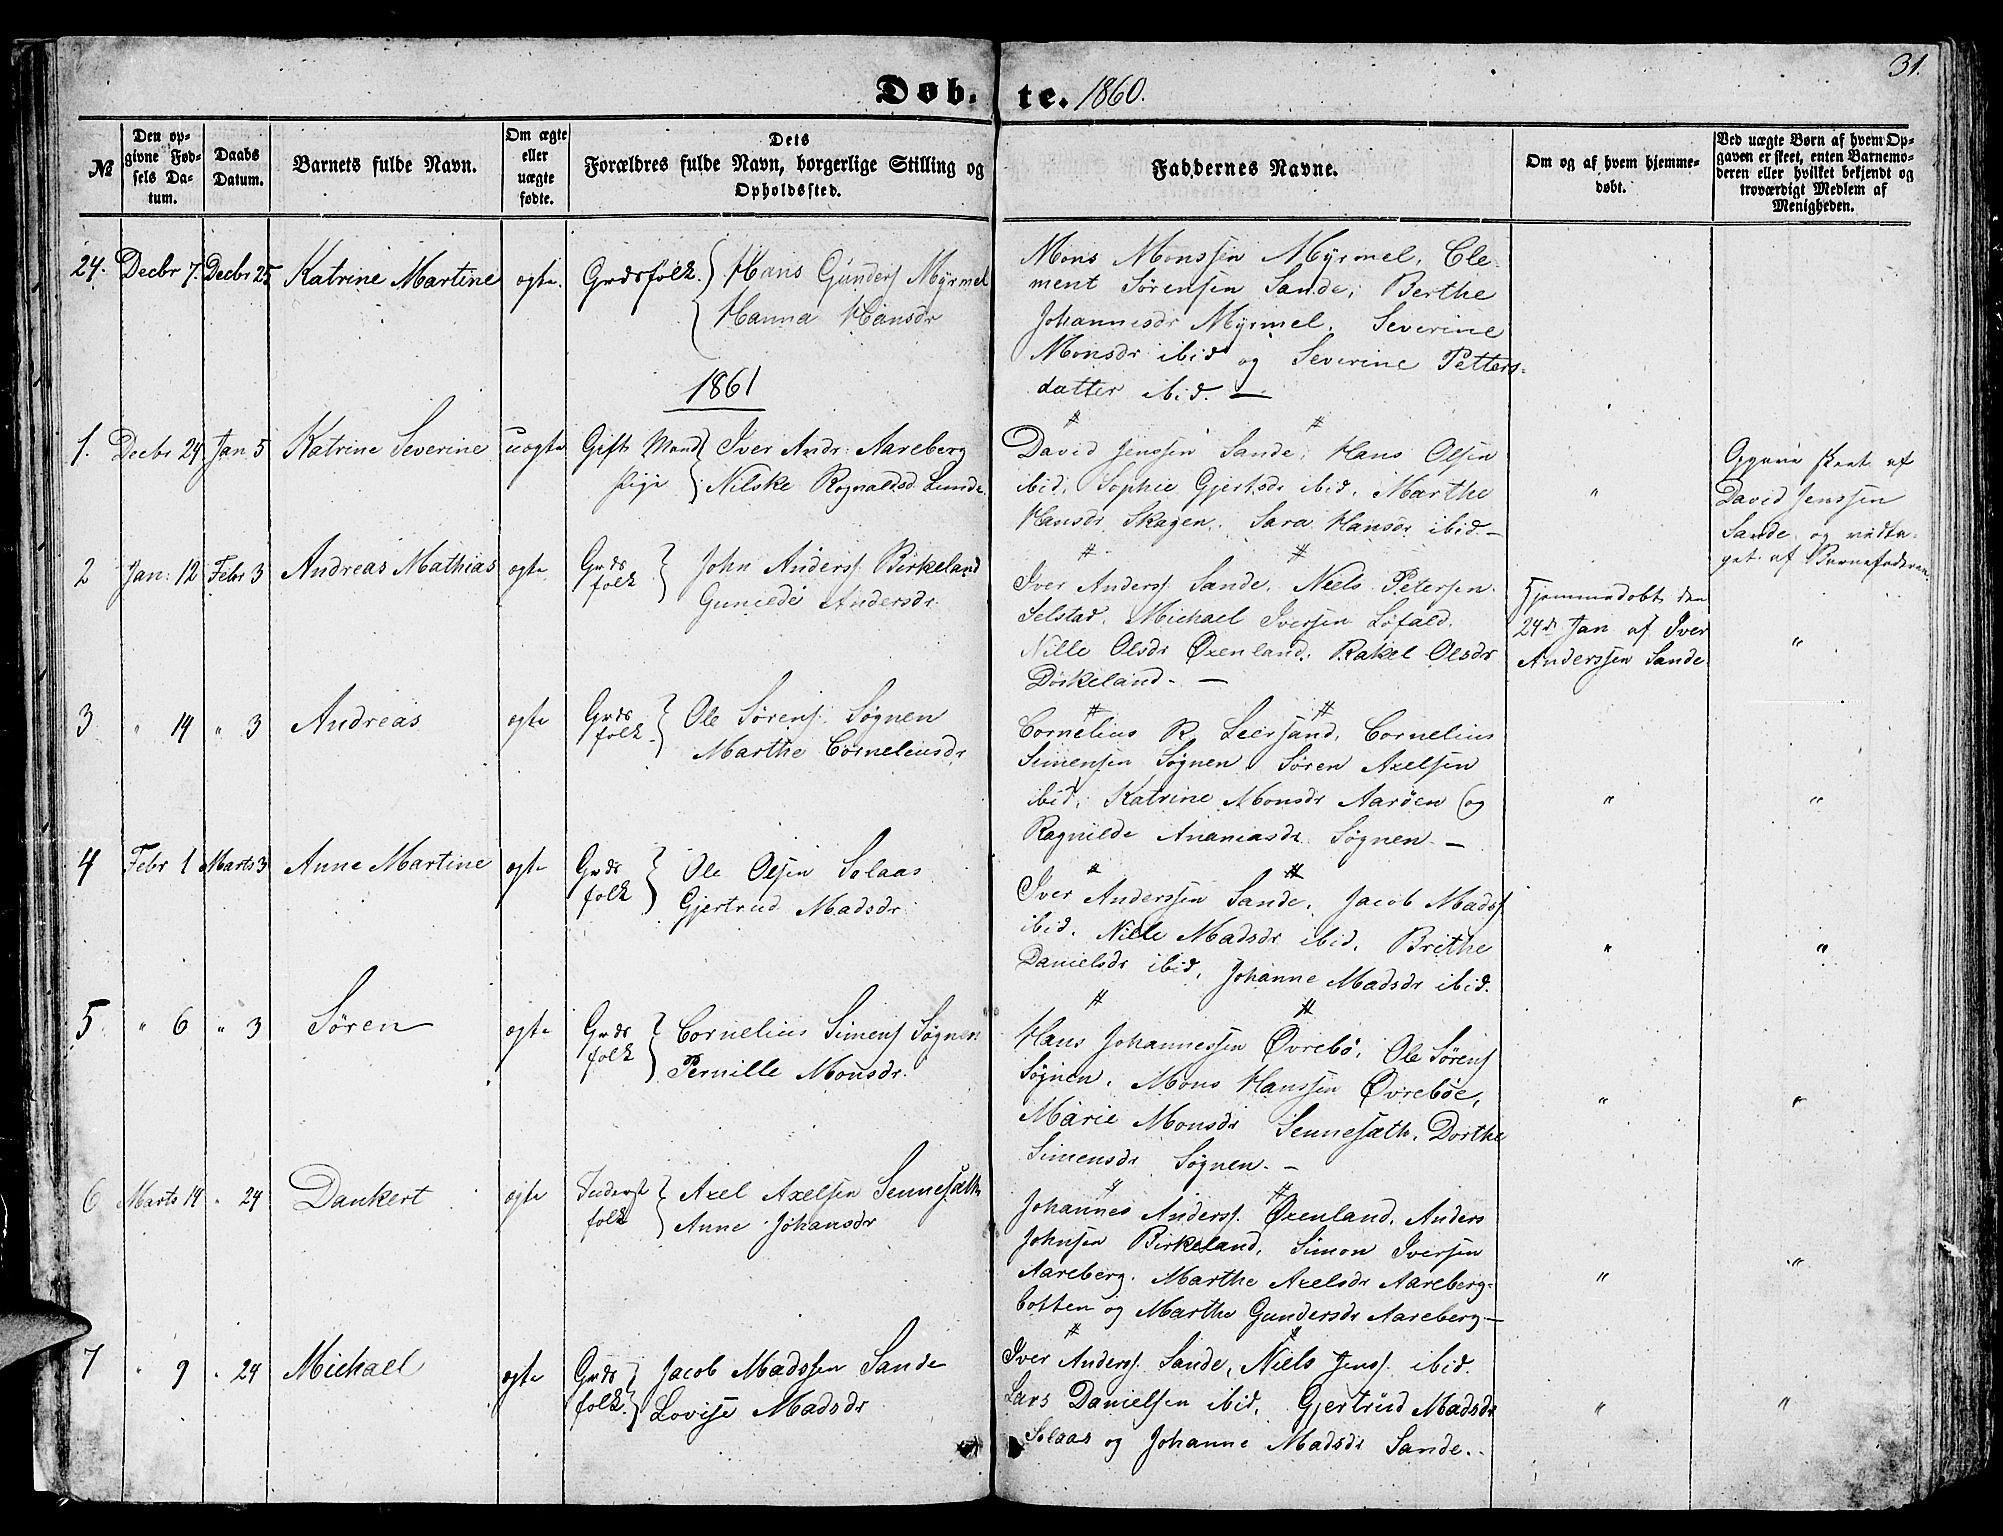 31.
Døb- te. 1860.
№
Den opgivne Fødsels Datum.
Daabs Datum.
Barnets fulde Navn.
Om ægte eller uægte fødte.
Dets Forældres fulde Navn, borgerlige Stilling og Opholdssted.
Faddernes Navne.
Om og af hvem hjemmedøbt.
Ved uægte Børn af hvem Opgaven er skeet, enten Barnemoderen eller hvilket bekjendt og troværdigt Medlem af Menigheden.
24. Decbr 7. Decbr 25 Katrine Martine ægte. Grdsfolk. Hans Gunders Myrmel
Hanna Hansdr
Mons Monssen Myrmel, Cle-
ment Sørensen Sande, Berthe
Johannesdr Myrmel. Severine
Monsdr ibid og Severine Petters-
datter ibid. —
1861
1. Decbr 24 Jan 5 Katrine Severine uægte Gift Mand Iver Andr: Aareberg
Pige Nilske Rognaldsd. Lunde.
David Jenssen Sande, Hans Olsen
ibid, Sophie Gjertsdr ibid, Marthe
Hansdr Skagen. Sara Hansdr ibid. —
"
Opgave skeet af
David Jenssen
Sande og vedta-
get af Barnefaderen
2 Jan: 12 Febr 3 Andreas Mathias ægte Grds folk John Anders. Birkeland
Gunilde Andersdr
Iver Anderss Sande. Niels Petersen
Selstad, Michael Iversen Løfald.
Nille Olsdr Øxenland, Rakel Olsdr
Birkeland. —
Hjemmedøbt den
24de Jan af Iver
Anderssen Sande
"
3 " 19 " 3 Andreas ægte Grds folk Ole Sørens. Søgnen
Marthe Corneliusdr
Cornelius R. Leirsand, Cornelius
Simensen Søgnen, Søren Axelsen
ibid, Katrine Monsdr Aarøen og
Ragnilde Ananiasdr Søgnen —
" "
4 Febr 1 Marts 3 Anne Martine ægte Grds folk Ole Olsen Solaas
Gjertrud Madsdr
Iver Anderssen Sande, Jacob Madss
ibid. Nille Madsdr ibid, Brithe
Danielsdr ibid, Johanne Madsdr ibid.
" "
5. " 6 " 3 Søren ægte Grds folk Cornelius Simens Søgnen
Pernille Monsdr.
Hans Johannessen Øvrebø, Ole Sørens
Søgnen, Mons Hanssen Øvrebøe,
Marie Monsdr Sennesæth, Dorthe
Simensdr Søgnen. —
" "
6 Marts 14 " 24 Dankert ægte Inderst folk Axel Axelsen Sennesæth
Anne Johansdr
Johannes Anderss. Øxenland, Anders
Johnsen Birkeland, Simon Iversen
Aareberg. Marthe Axelsdr Aareberg-
botten og Marthe Gundersdr Aareberg —
" "
7 " 9 " 24 Michael ægte Grds folk. Jacob Madssen Sande
Lovise Madsdr
Iver Anderss. Sande, Niels Jenss. ibid.
Lars Danielsen ibid, Gjertrud Madsdr
Solaas og Johanne Madsdr Sande. -
" "